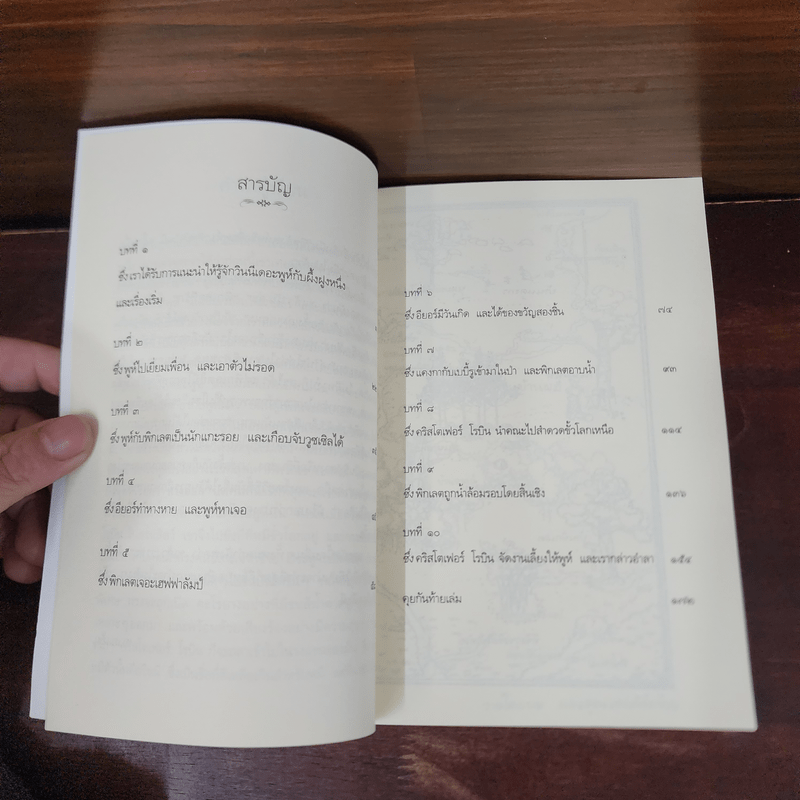 สารบัญ
บทที่ ๑
ซึ่ง เราได้รับการแนะนำให้รู้จักวินนีเดอะพูห์กับผึ้งฝูงหนึ่ง
และเรื่องเริ่ม
บทที่ ๒
ซึ่ง พูห์ไปเยี่ยมเพื่อน และเอาตัวไม่รอด
บทที่ ๓
ซึ่ง พูห์กับพิกเลตเป็นนักแกะรอย และเกือบจับวูซเซิลได้
บทที่ ๔
ซึ่ง อียอร์ทำหางหาย และพูห์หาเจอ
บทที่ ๕
ซึ่ง พิกเลตเจอะเฮฟฟาลัมป์
บทที่ ๖
ซึ่ง อียอร์มีวันเกิด และได้ของขวัญสองชิ้น ๗๔
บทที่ ๗
ซึ่ง แคงกากับเบบี้รูเข้ามาในป่า และพิกเลตอาบน้ำ ๙๓
บทที่ ๘
ซึ่ง คริสโตเฟอร์ โรบิน นำคณะไปสำดวดขั้วโลกเหนือ ๑๑๔
บทที่ ๙
ซึ่ง พิกเลตถูกน้ำล้อมรอบโดยสิ้นเชิง ๑๓๖
บทที่ ๑๐
ซึ่ง คริสโตเฟอร์ โรบิน จัดงานเลี้ยงให้พูห์ และเรากล่าวอำลา ๑๕๔
คุยกันท้ายเล่ม ๑๗๒